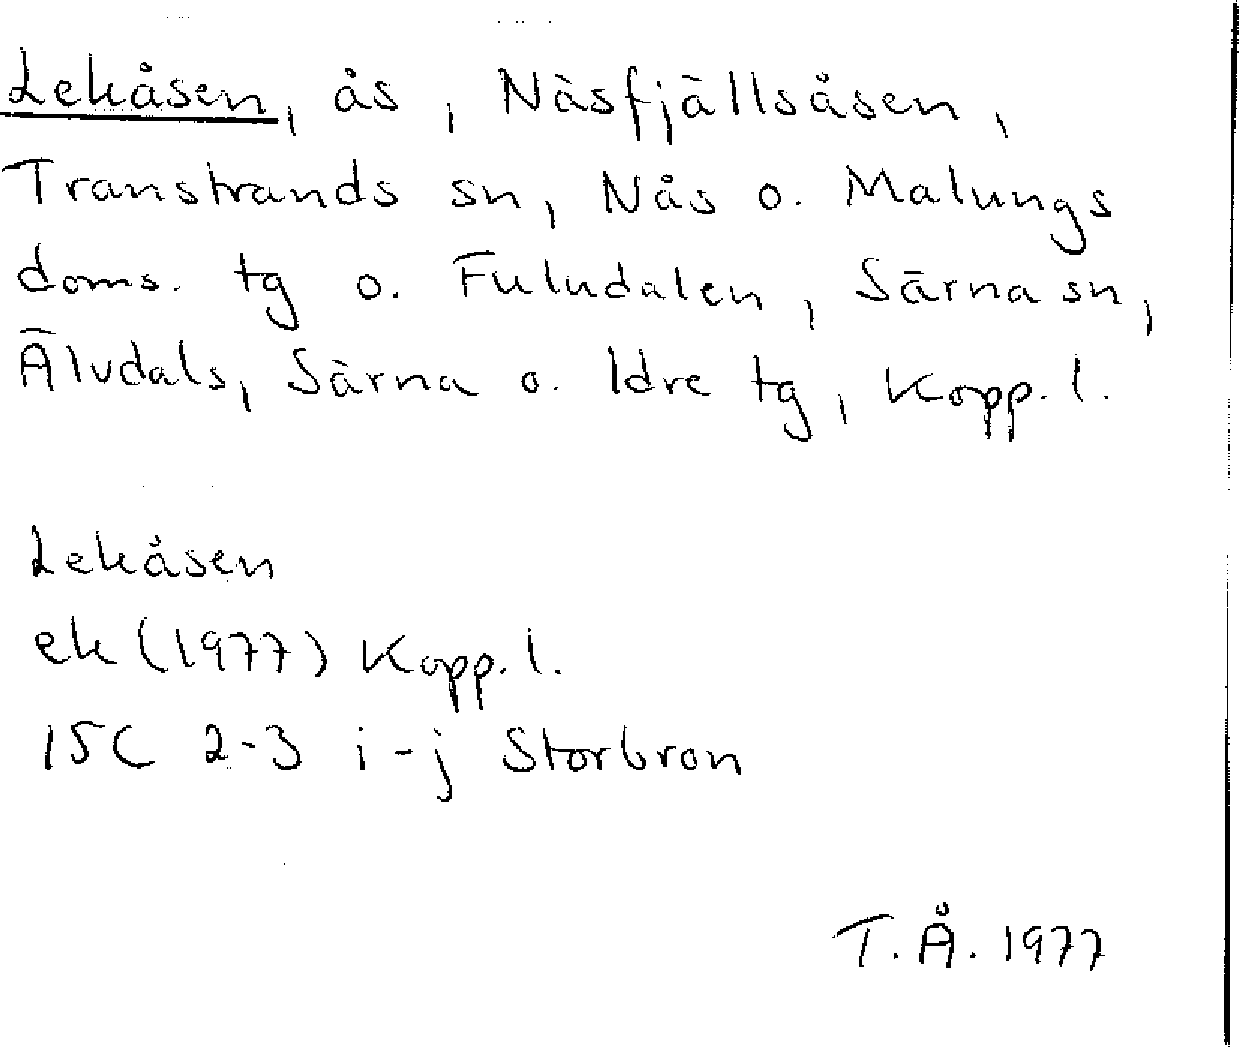 Lekåsen, ås, Näsfjällsåsen,
Transtrands sn, Nås o. Malungs
doms. tg o. Fuludalen, Särna sn,
Älvdals, Särna o. Idre tg, Kopp. l.
Lekåsen
ek (1977) Kopp. l.
15C 2-3 i-j Storbron
T. Å. 1977